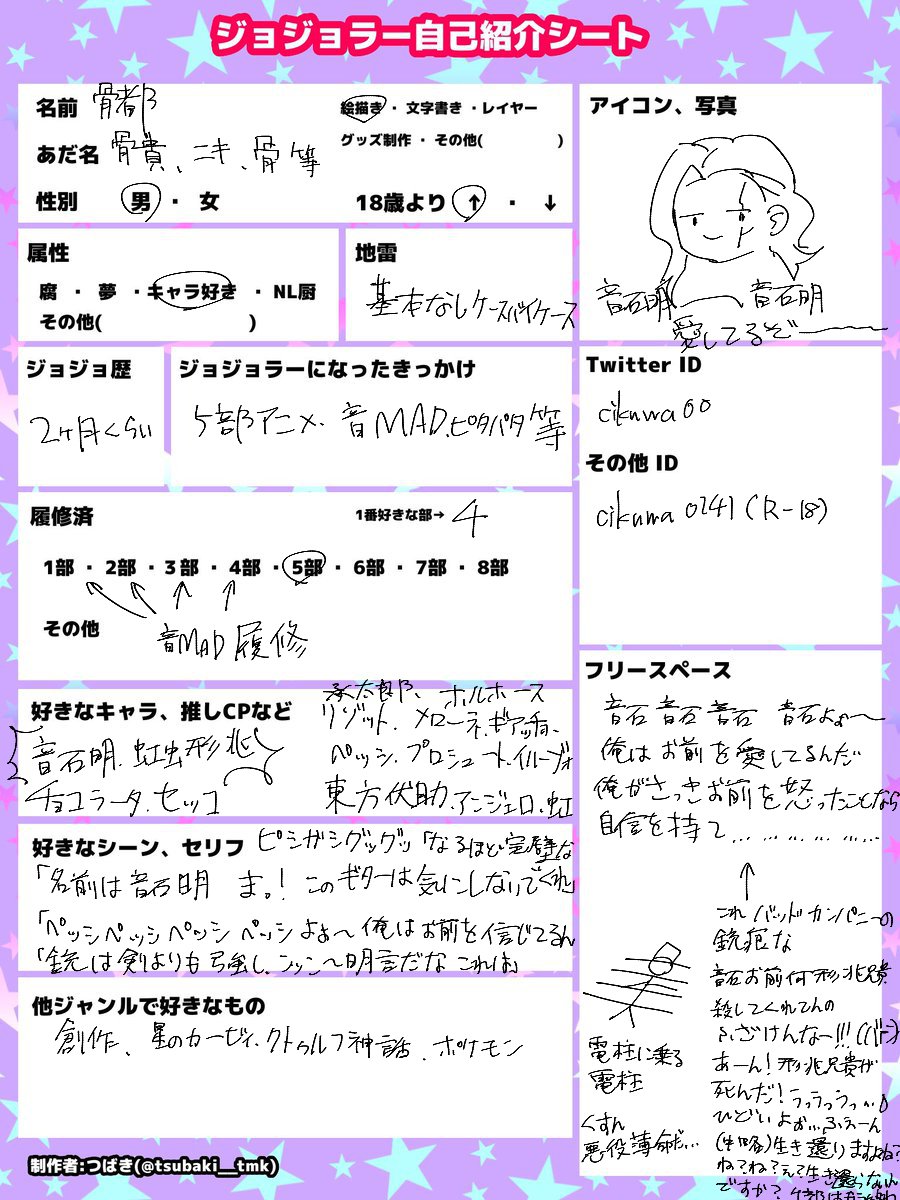 ジョジョラー自己紹介シート
名前 骨都
あだ名 骨貴、ニキ、骨等
性別 男 ・ 女
絵描き ・ 文字書き ・ レイヤー
グッズ制作 ・ その他( )
18歳より ↑ ・ ↓
アイコン、写真
音石明 音石明
愛してるぞーーー
属性
腐 ・ 夢 ・ キャラ好き ・ NL厨
その他( )
地雷
基本なしケースバイケース
ジョジョ歴
2ヶ月くらい
ジョジョラーになったきっかけ
5部アニメ、音MAD、ピタパタ等
Twitter ID
cikuwa00
その他 ID
cikuma0241(R-18)
履修済
1番好きな部→ 4
1部 ・ 2部 ・ 3部 ・ 4部 ・ 5部 ・ 6部 ・ 7部 ・ 8部
その他
音MAD履修
好きなキャラ、推しCPなど
音石明、虹虫形兆
チョコラータ、セッコ
承太郎、ホルホース
リゾット、メローネ、ギアッチョ、
ペッシ、プロシュート、イルーゾォ
東方仗助、アンジェロ、虹
好きなシーン、セリフ
ピシガシグッグッ「なるほど完璧な
「名前は音石明 ま。! このギターは気にしないでくれ」
「ペッシペッシペッシ ペッシよぉ〜俺はお前を信じてるん
「銃は剣よりも強し ンッン〜明言だな これは」
他ジャンルで好きなもの
創作、星のカービィ、クトゥルフ神話、ポケモン
フリースペース
音石音石音石 音石よぉ〜
俺はお前を愛してるんだ
俺がさっきお前を怒ったことなら
自信を持て……………
↑
これバッドカンパニーの
銃痕な
音石お前何形兆兄貴
殺してくれてんの
ふざけんなー!!!
あーん!形兆兄貴が
死んだ!うっうっうっ…
ひどいよお…ふぇーん
(中略)生き還りますよね?
ね?ね?
ですか?
電柱に乗る
電柱
くすん
悪役薄命だ…
制作者:つばき(@tsubaki__tmk)